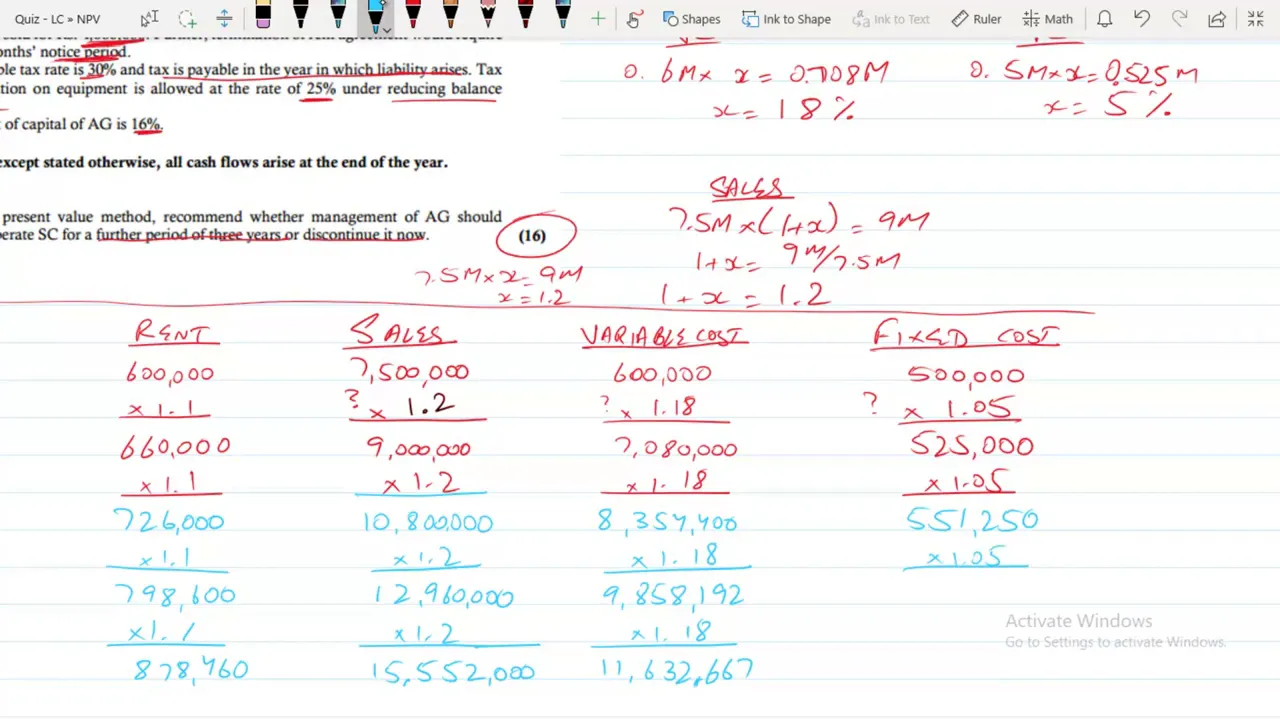 Quiz - LC » NPV
Shapes
Ink to Shape
Ink to Text
Ruler
Math
onths' notice period.
ble tax rate is 30% and tax is payable in the year in which liability arises. Tax
tion on equipment is allowed at the rate of 25% under reducing balance
t of capital of AG is 16%.
except stated otherwise, all cash flows arise at the end of the year.
present value method, recommend whether management of AG should
perate SC for a further period of three years or discontinue it now.
(16)
0. 6M x x = 0.708M
x = 18%
0. 5M x x = 0.525M
x = 5%
SALES
7.5M x (1+x) = 9M
1+x = 9M/7.5M
1+x = 1.2
7.5M x x = 9M
x = 1.2
RENT
600,000
x 1.1
660,000
x 1.1
726,000
x 1.1
798,600
x 1.1
878,460
SALES
7,500,000
? x 1.2
9,000,000
x 1.2
10,800,000
x 1.2
12,960,000
x 1.2
15,552,000
VARIABLE COST
600,000
? x 1.18
7,080,000
x 1.18
8,354,400
x 1.18
9,858,192
x 1.18
11,632,667
FIXED COST
500,000
? x 1.05
525,000
x 1.05
551,250
x 1.05
Activate Windows
Go to Settings to activate Windows.